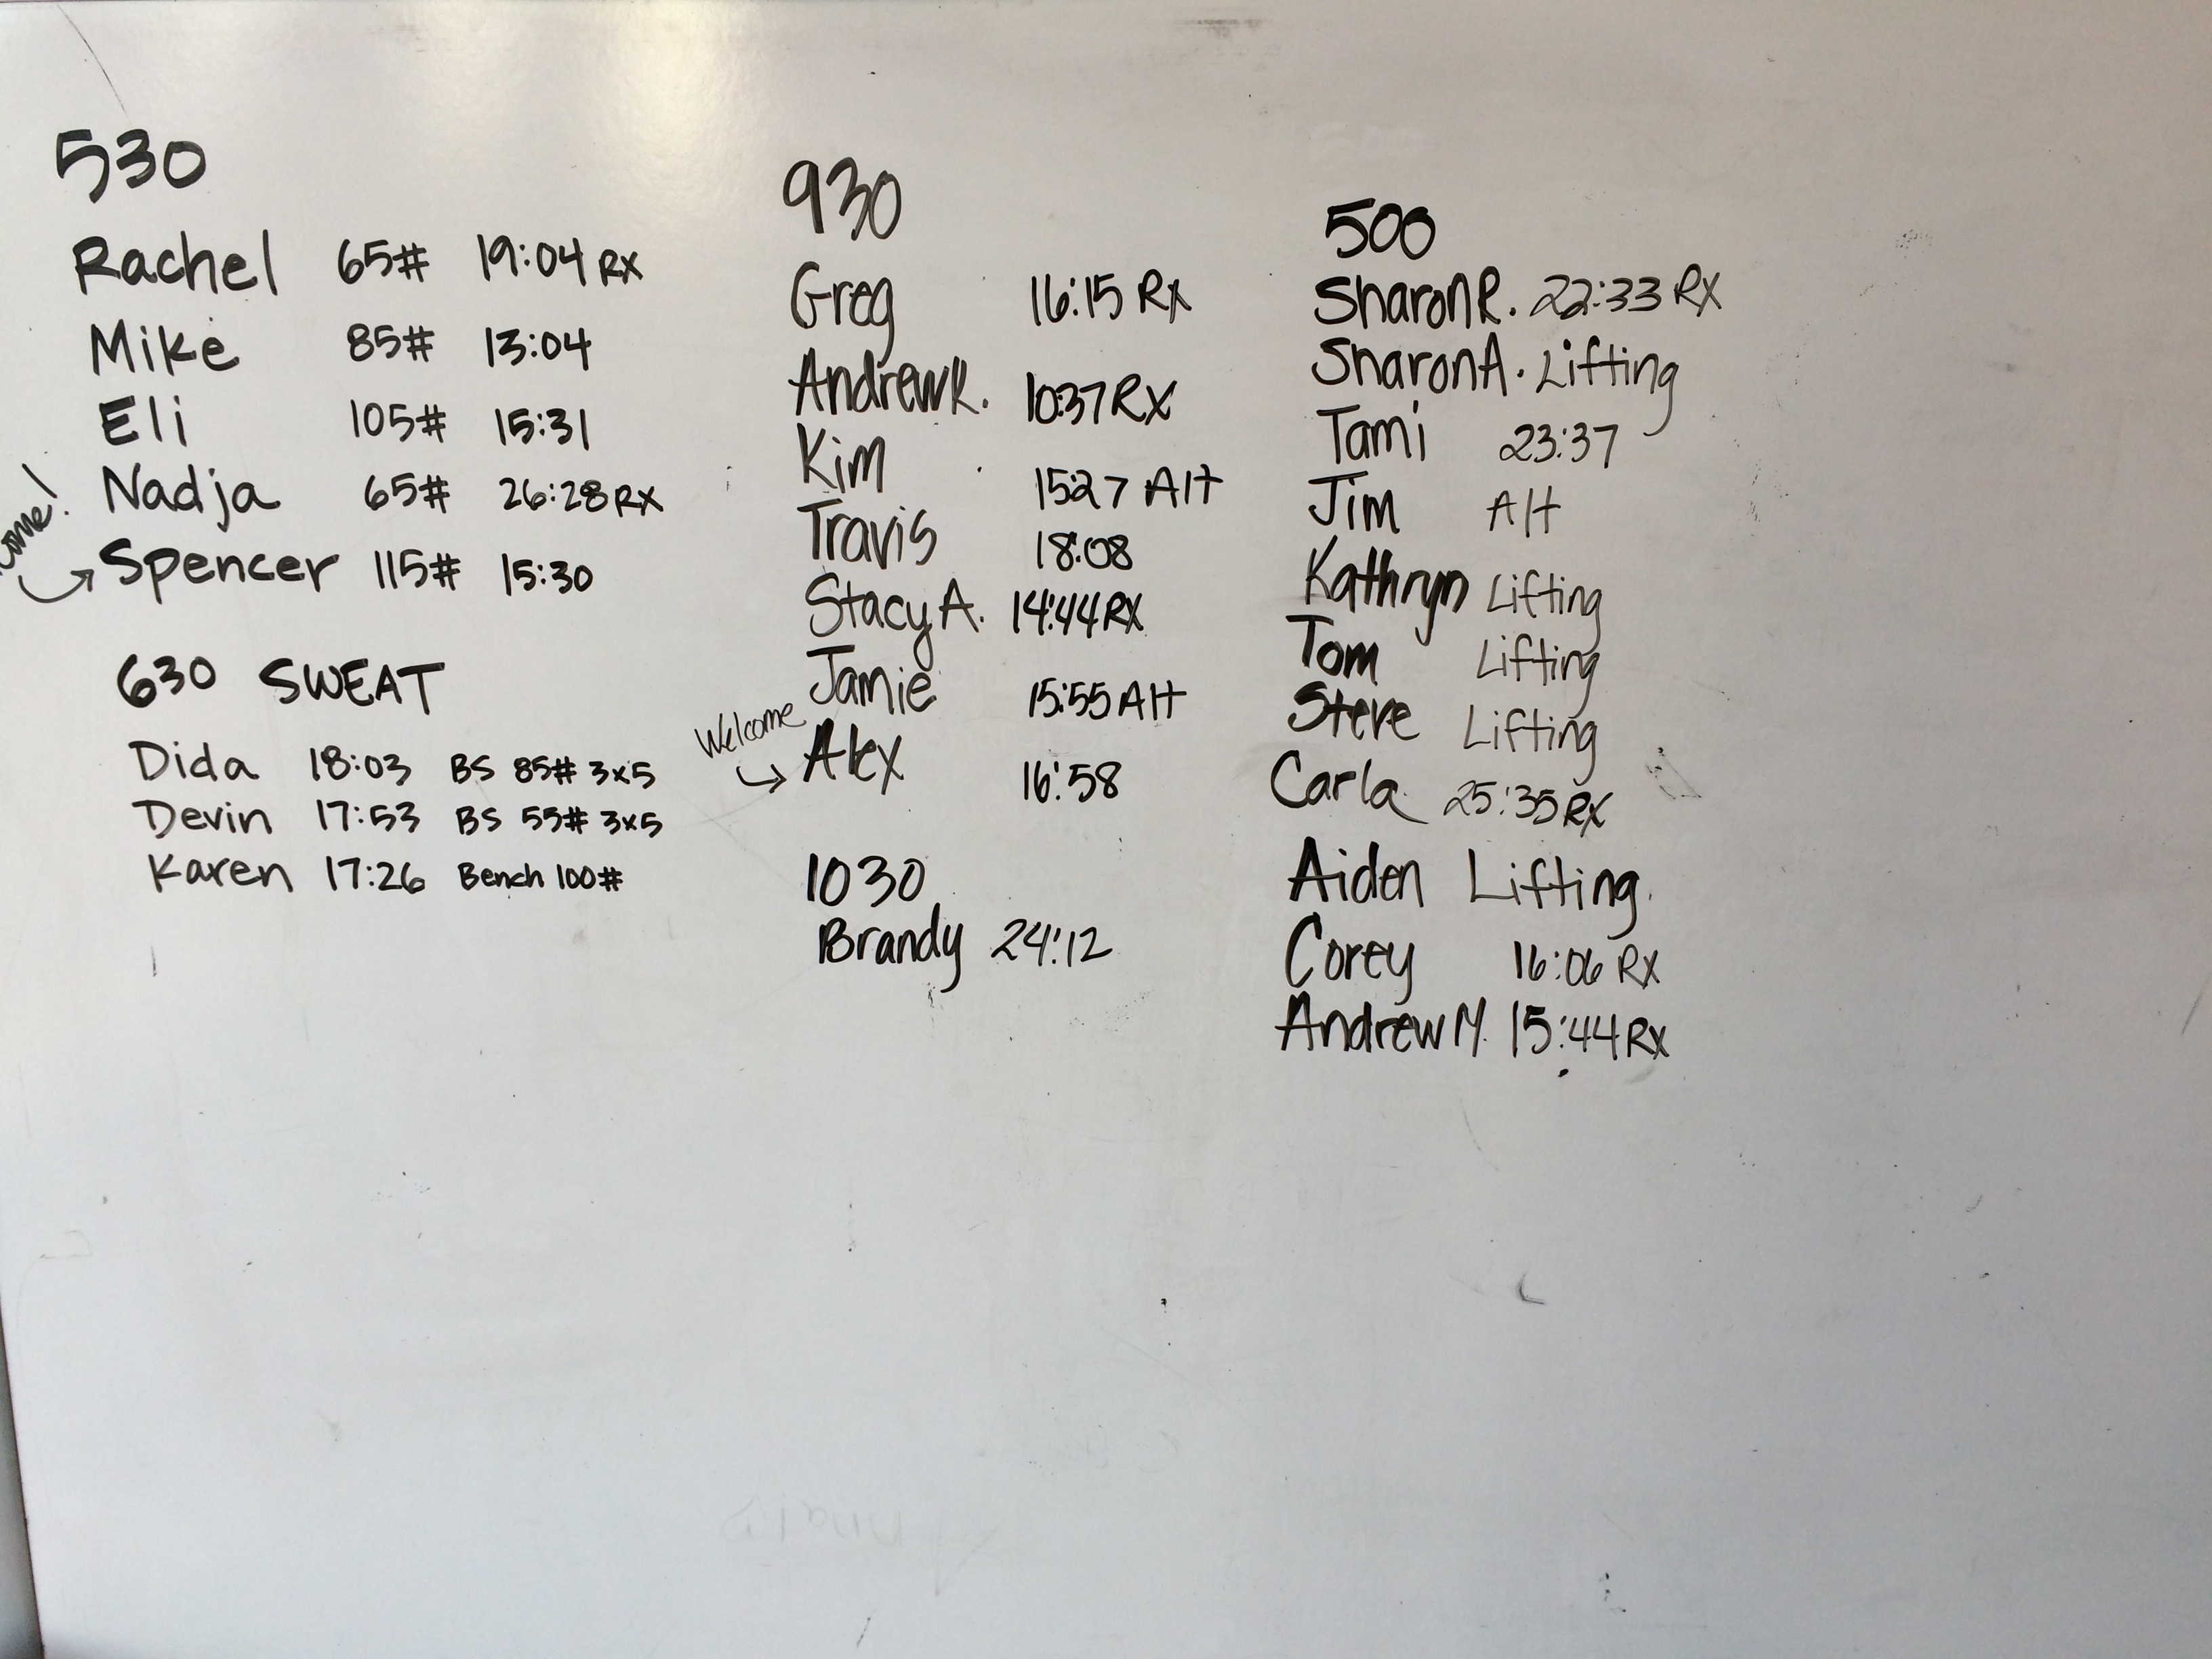 530
Rachel 65# 19:04 RX
Mike 85# 13:04
Eli 105# 15:31
Nadja 65# 26:28 RX
Spencer 115# 15:30
630 SWEAT
Dida 18:03 BS 85# 3x5
Devin 17:53 BS 55# 3x5
Karen 17:26 Bench 100#
930
Greg 16:15 Rx
Andrew R. 10:37 RX
Kim 15:27 Alt
Travis 18:08
Stacy A. 14:44 RX
Jamie 15:55 Alt
Welcome
Alex 16:58
1030
Brandy 24:12
500
Sharon R. 22:33 RX
Sharon A. Lifting
Tami 23:37
Jim Alt
Kathryn Lifting
Tom Lifting
Steve Lifting
Carla 25:35 RX
Aiden Lifting
Corey 16:06 RX
Andrew M. 15:44 RX